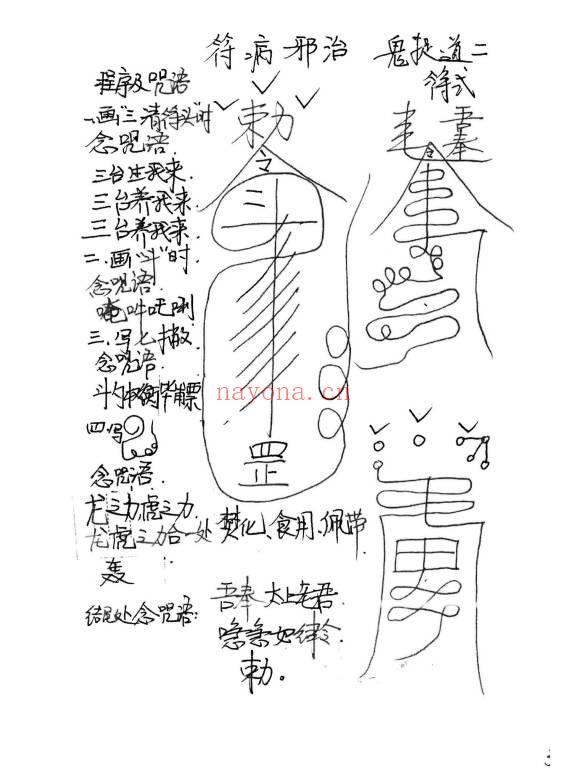 符病邪治 鬼捉道二
符式
程序及咒语
一、画"三清符头"时
念咒语.
三台生我来.
三台养我来.
三台养我来.
二.画"斗"时
念咒语.
唵吽吒唎
三.写七撇
念咒语.
四写
念咒语.
龙之力虎之力.
龙虎之力合一处
轰
结尾处念咒语:
勅
令
二
罡
焚化、食用、佩带
吾奉 太上老君
急急如律令
勅。
吾奉
令
nayona.cn